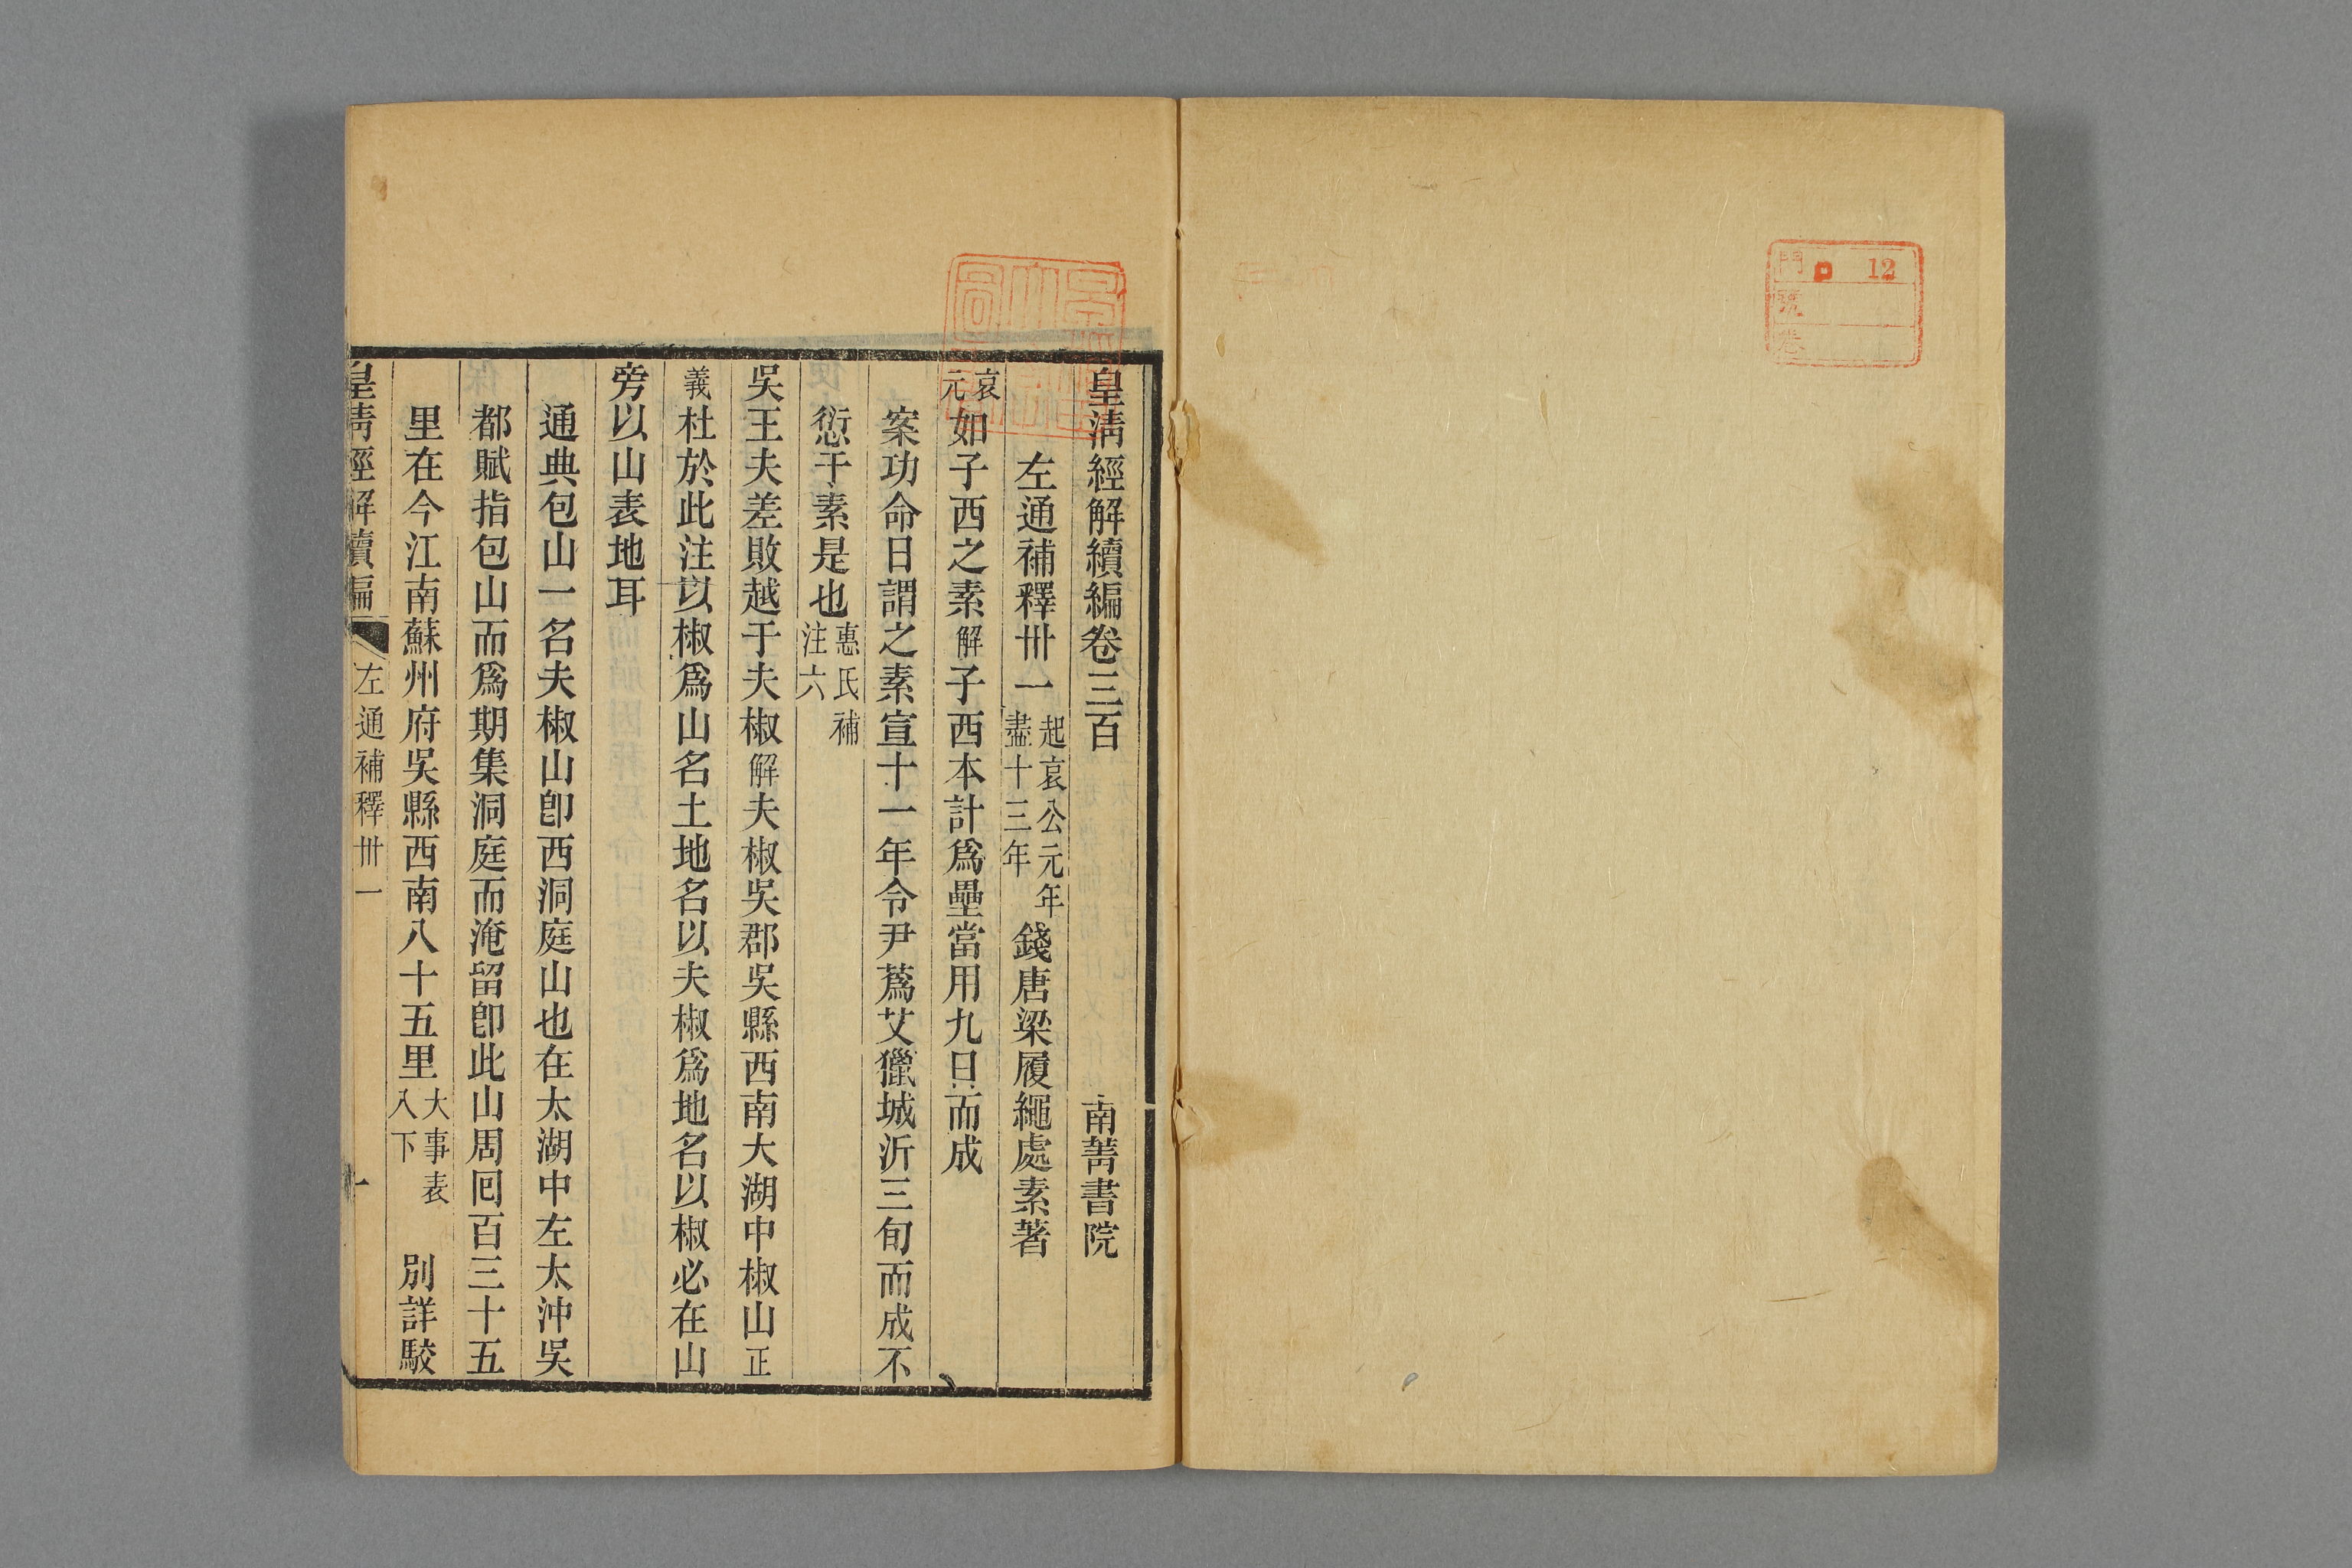 門 12
號
卷
皇清經解續編卷三百 南菁書院
左通補釋卅一 起哀公元年盡十三年 錢唐梁履繩處素著
哀元如子西之素解子西本計爲壘當用九日而成
案功命日謂之素宣十一年令尹蔿艾獵城沂三旬而成不
愆于素是也 惠氏補注六
吳王夫差敗越于夫椒解夫椒吳郡吳縣西南大湖中椒山正
義杜於此注以椒爲山名土地名以夫椒爲地名以椒必在山
旁以山表地耳
通典包山一名夫椒山卽西洞庭山也在太湖中左太沖吳
都賦指包山而爲期集洞庭而淹留卽此山周囘百三十五
里在今江南蘇州府吳縣西南八十五里 大事表八下 別詳駮
皇清經解續編 左通補釋卅一 一